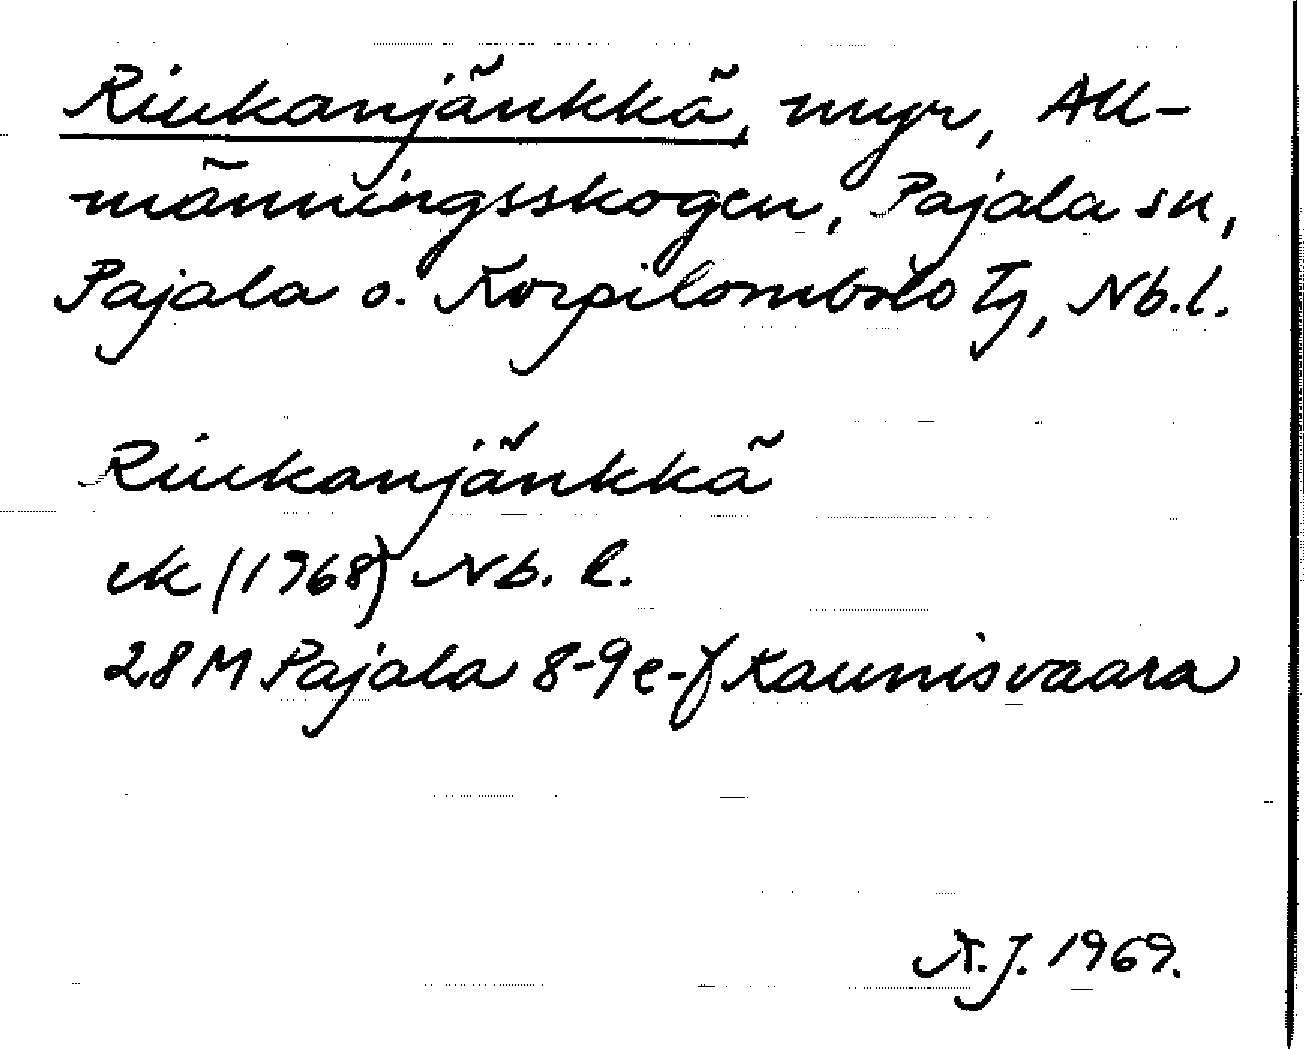 Riukanjänkkä, myr, All-
männingsskogen, Pajala sn,
Pajala o. Korpilombolo tg, Nb.l.
Riukanjänkkä
ek (1968) Nb. l.
28 M Pajala 8-9 e-f Kaunisvaara
A.J. 1969.